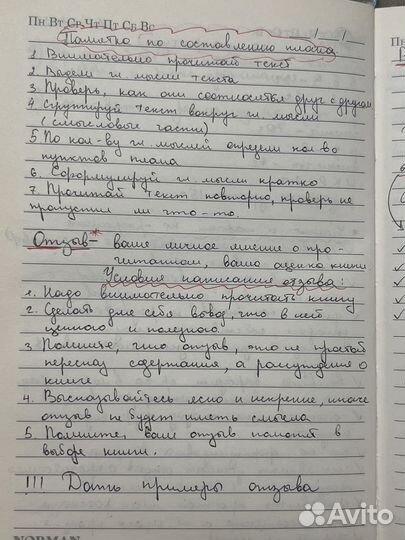 Пн Вт Ср Чт Пт Сб Вс
Памятка по составлению плана
1. Внимательно прочитай текст
2. Выдели гл. мысли текста
3. Проверь, как они соотносятся друг с другом
4. Сгруппируй текст вокруг гл. мысли
(смысловые части)
5. По кол-ву гл. мыслей определи кол-во
пунктов плана
6. Сформулируй гл. мысли кратко
7. Прочитай текст повторно, проверь не
пропустил ли что-то.
Отзыв* – ваше личное мнение о про-
читанном, ваша оценка книги
Условия написания отзыва:
1. Надо внимательно прочитать книгу
2. Сделать для себя вывод, что в ней
ценного и полезного.
3. Помните, что отзыв, это не простой
пересказ содержания, а рассуждения о
книге
4. Высказывайтесь ясно и искренне, иначе
отзыв не будет иметь смысла
5. Помните, ваш отзыв поможет в
выборе книги.
!!! Дать примеры отзыва
NORMAN
Avito